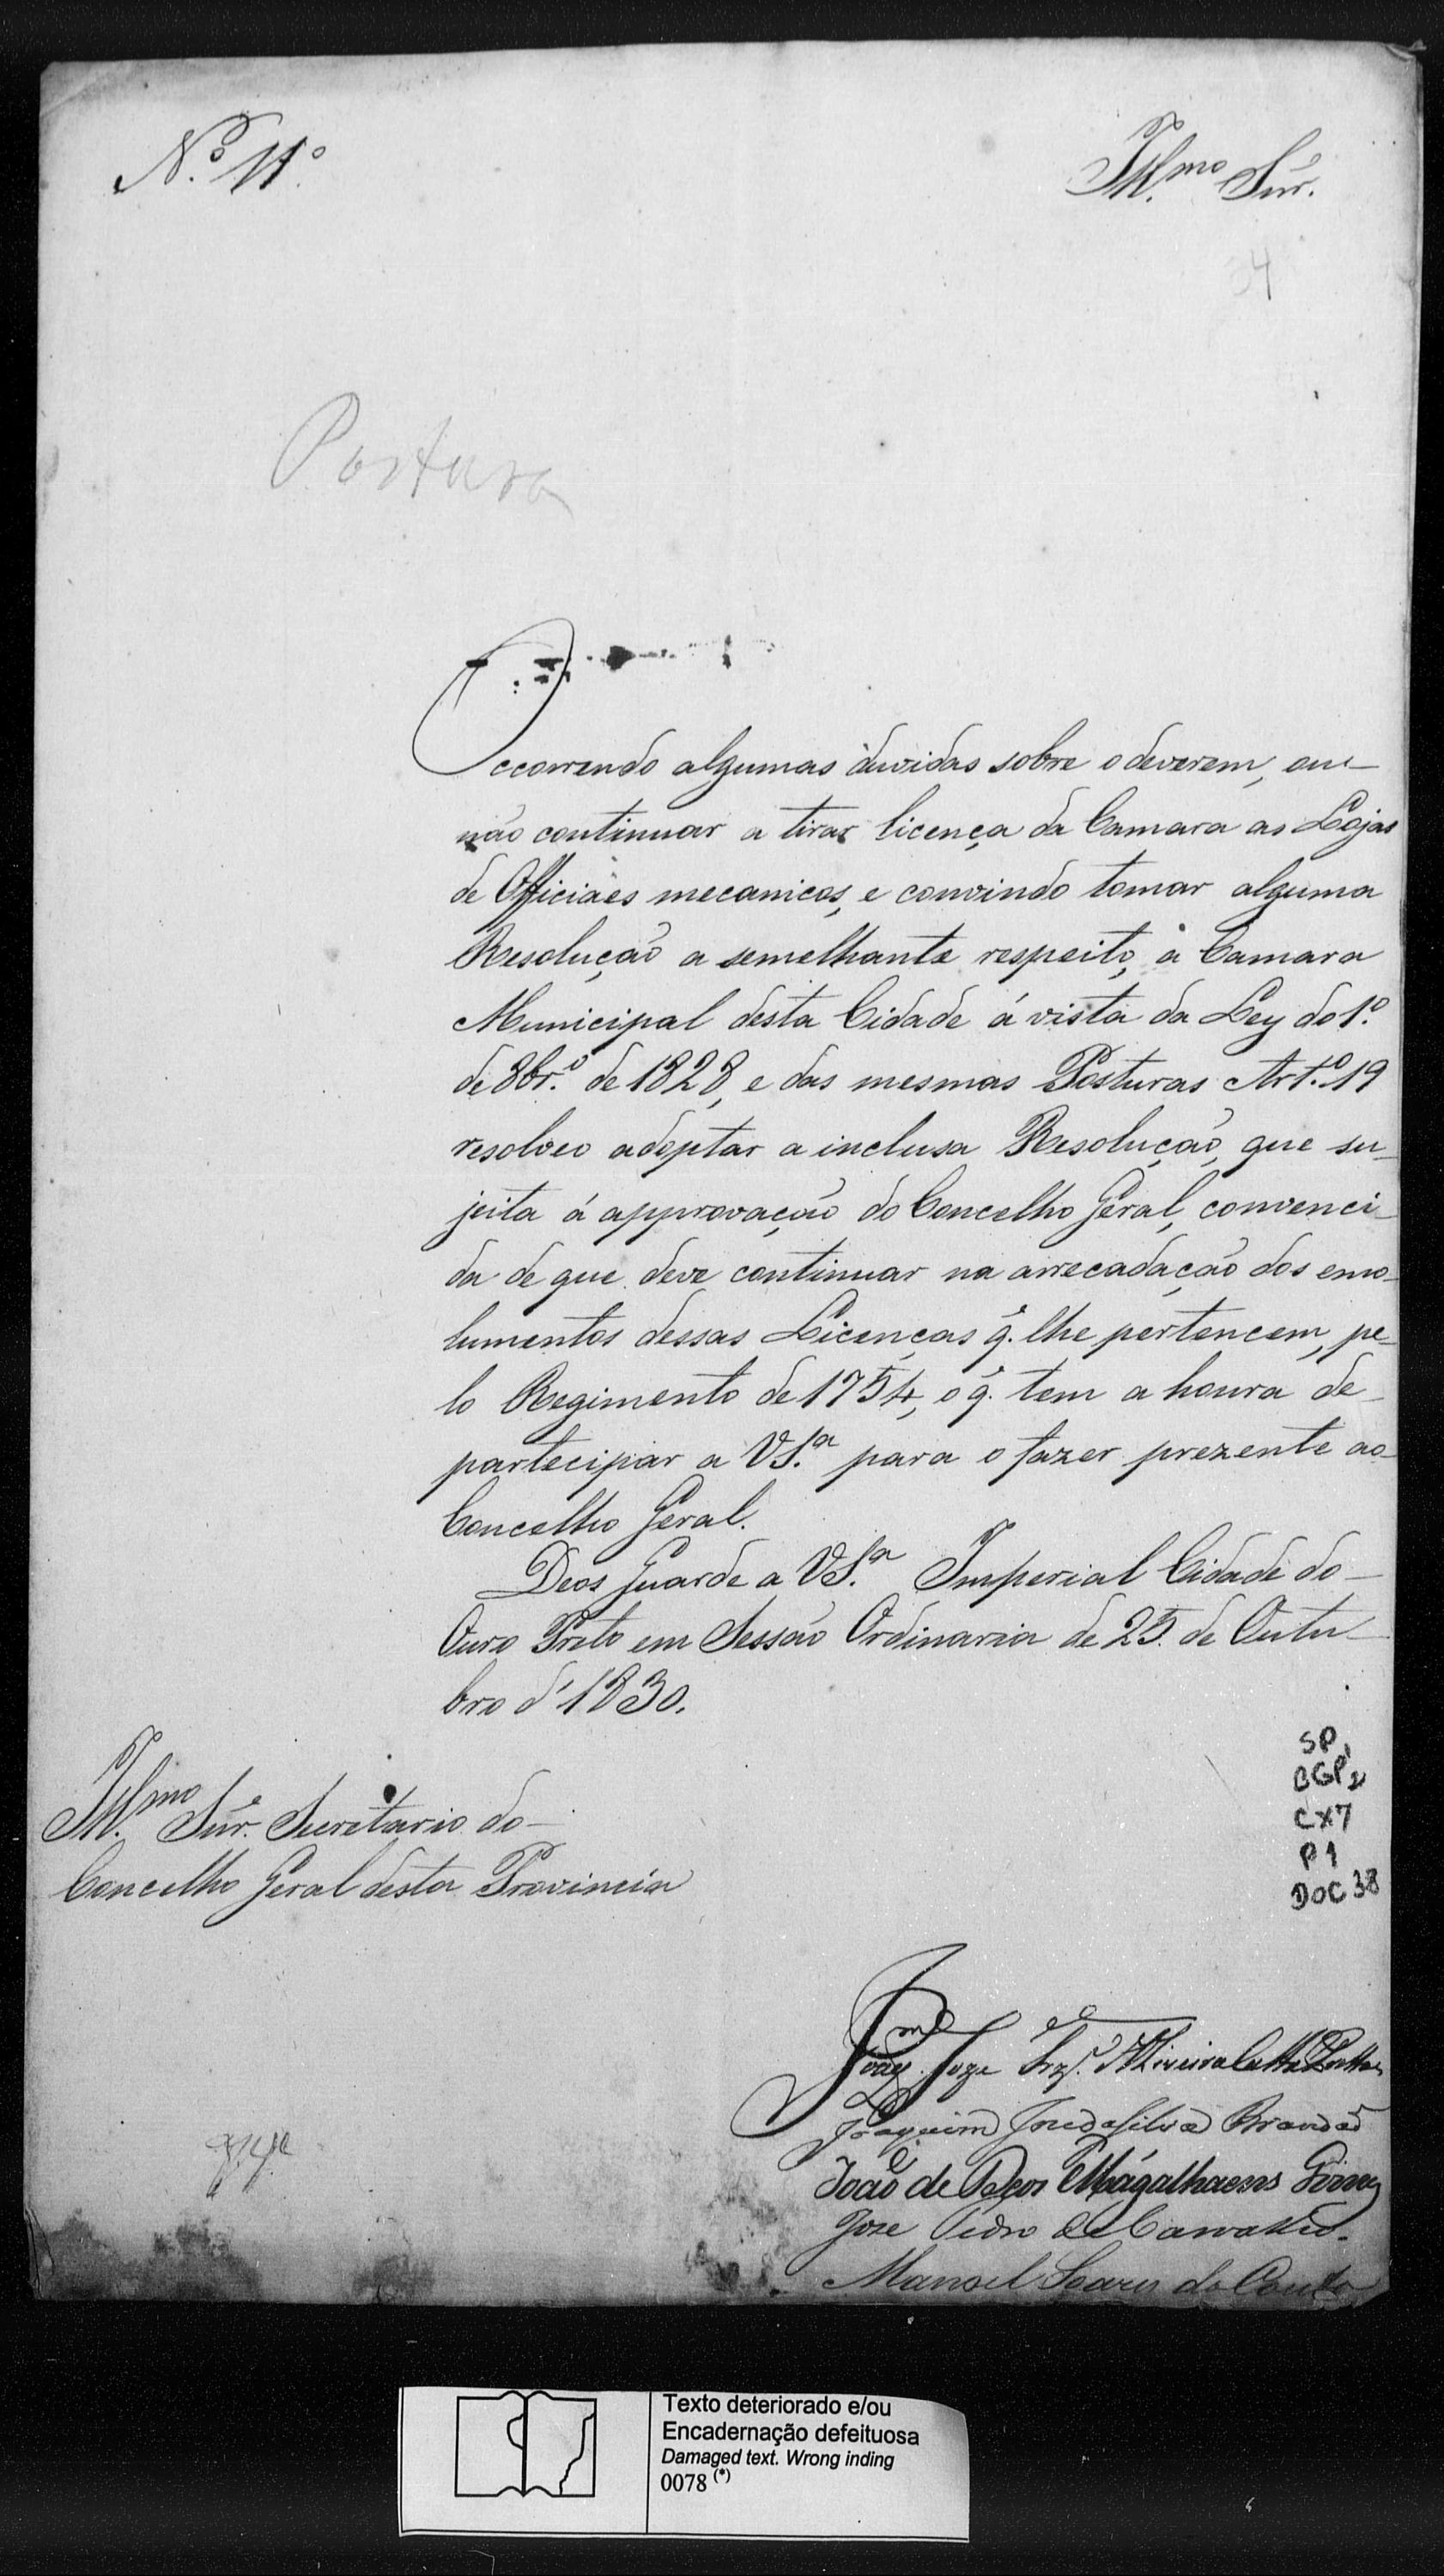 N.º 11º
Ill.mo Snr.
34
Postura
Occorrendo algumas duvidas sobre o deverem, ou
não continuar a tirar licença da Camara as Lojas
de Officiaes mecanicos, e convindo tomar alguma
Resolução a semelhante respeito, a Camara
Municipal desta Cidade á vista da Ley do 1º.
de 8br.º de 1828, e das mesmas Posturas Art.º 19
resolveo adoptar a inclusa Resolução, que su-
jeita á approvação do Concelho Geral, convenci-
da de que deve continuar na arrecadação dos emo-
lumentos dessas Licenças q. lhe pertencem, pe-
lo Regimento de 1754, o q. tem a honra de
partecipar a VS.ª para o fazer prezente ao
Concelho Geral.
Deos Guarde a VS.ª Imperial Cidade do
Ouro Preto em Sessão Ordinaria de 25 de Outu-
bro d'1830.
Ill.mo Snr. Secretario do
Concelho Geral desta Provincia
SP1
CGP2
CX7
P1
DOC 38
Joze
Joaquim Joze da Silva Brandão
João de Deos Magalhaens Gomes
Joze Pedro de Carvalho
Manoel Soares do Couto
Texto deteriorado e/ou
Encadernação defeituosa
Damaged text. Wrong inding
0078 (*)